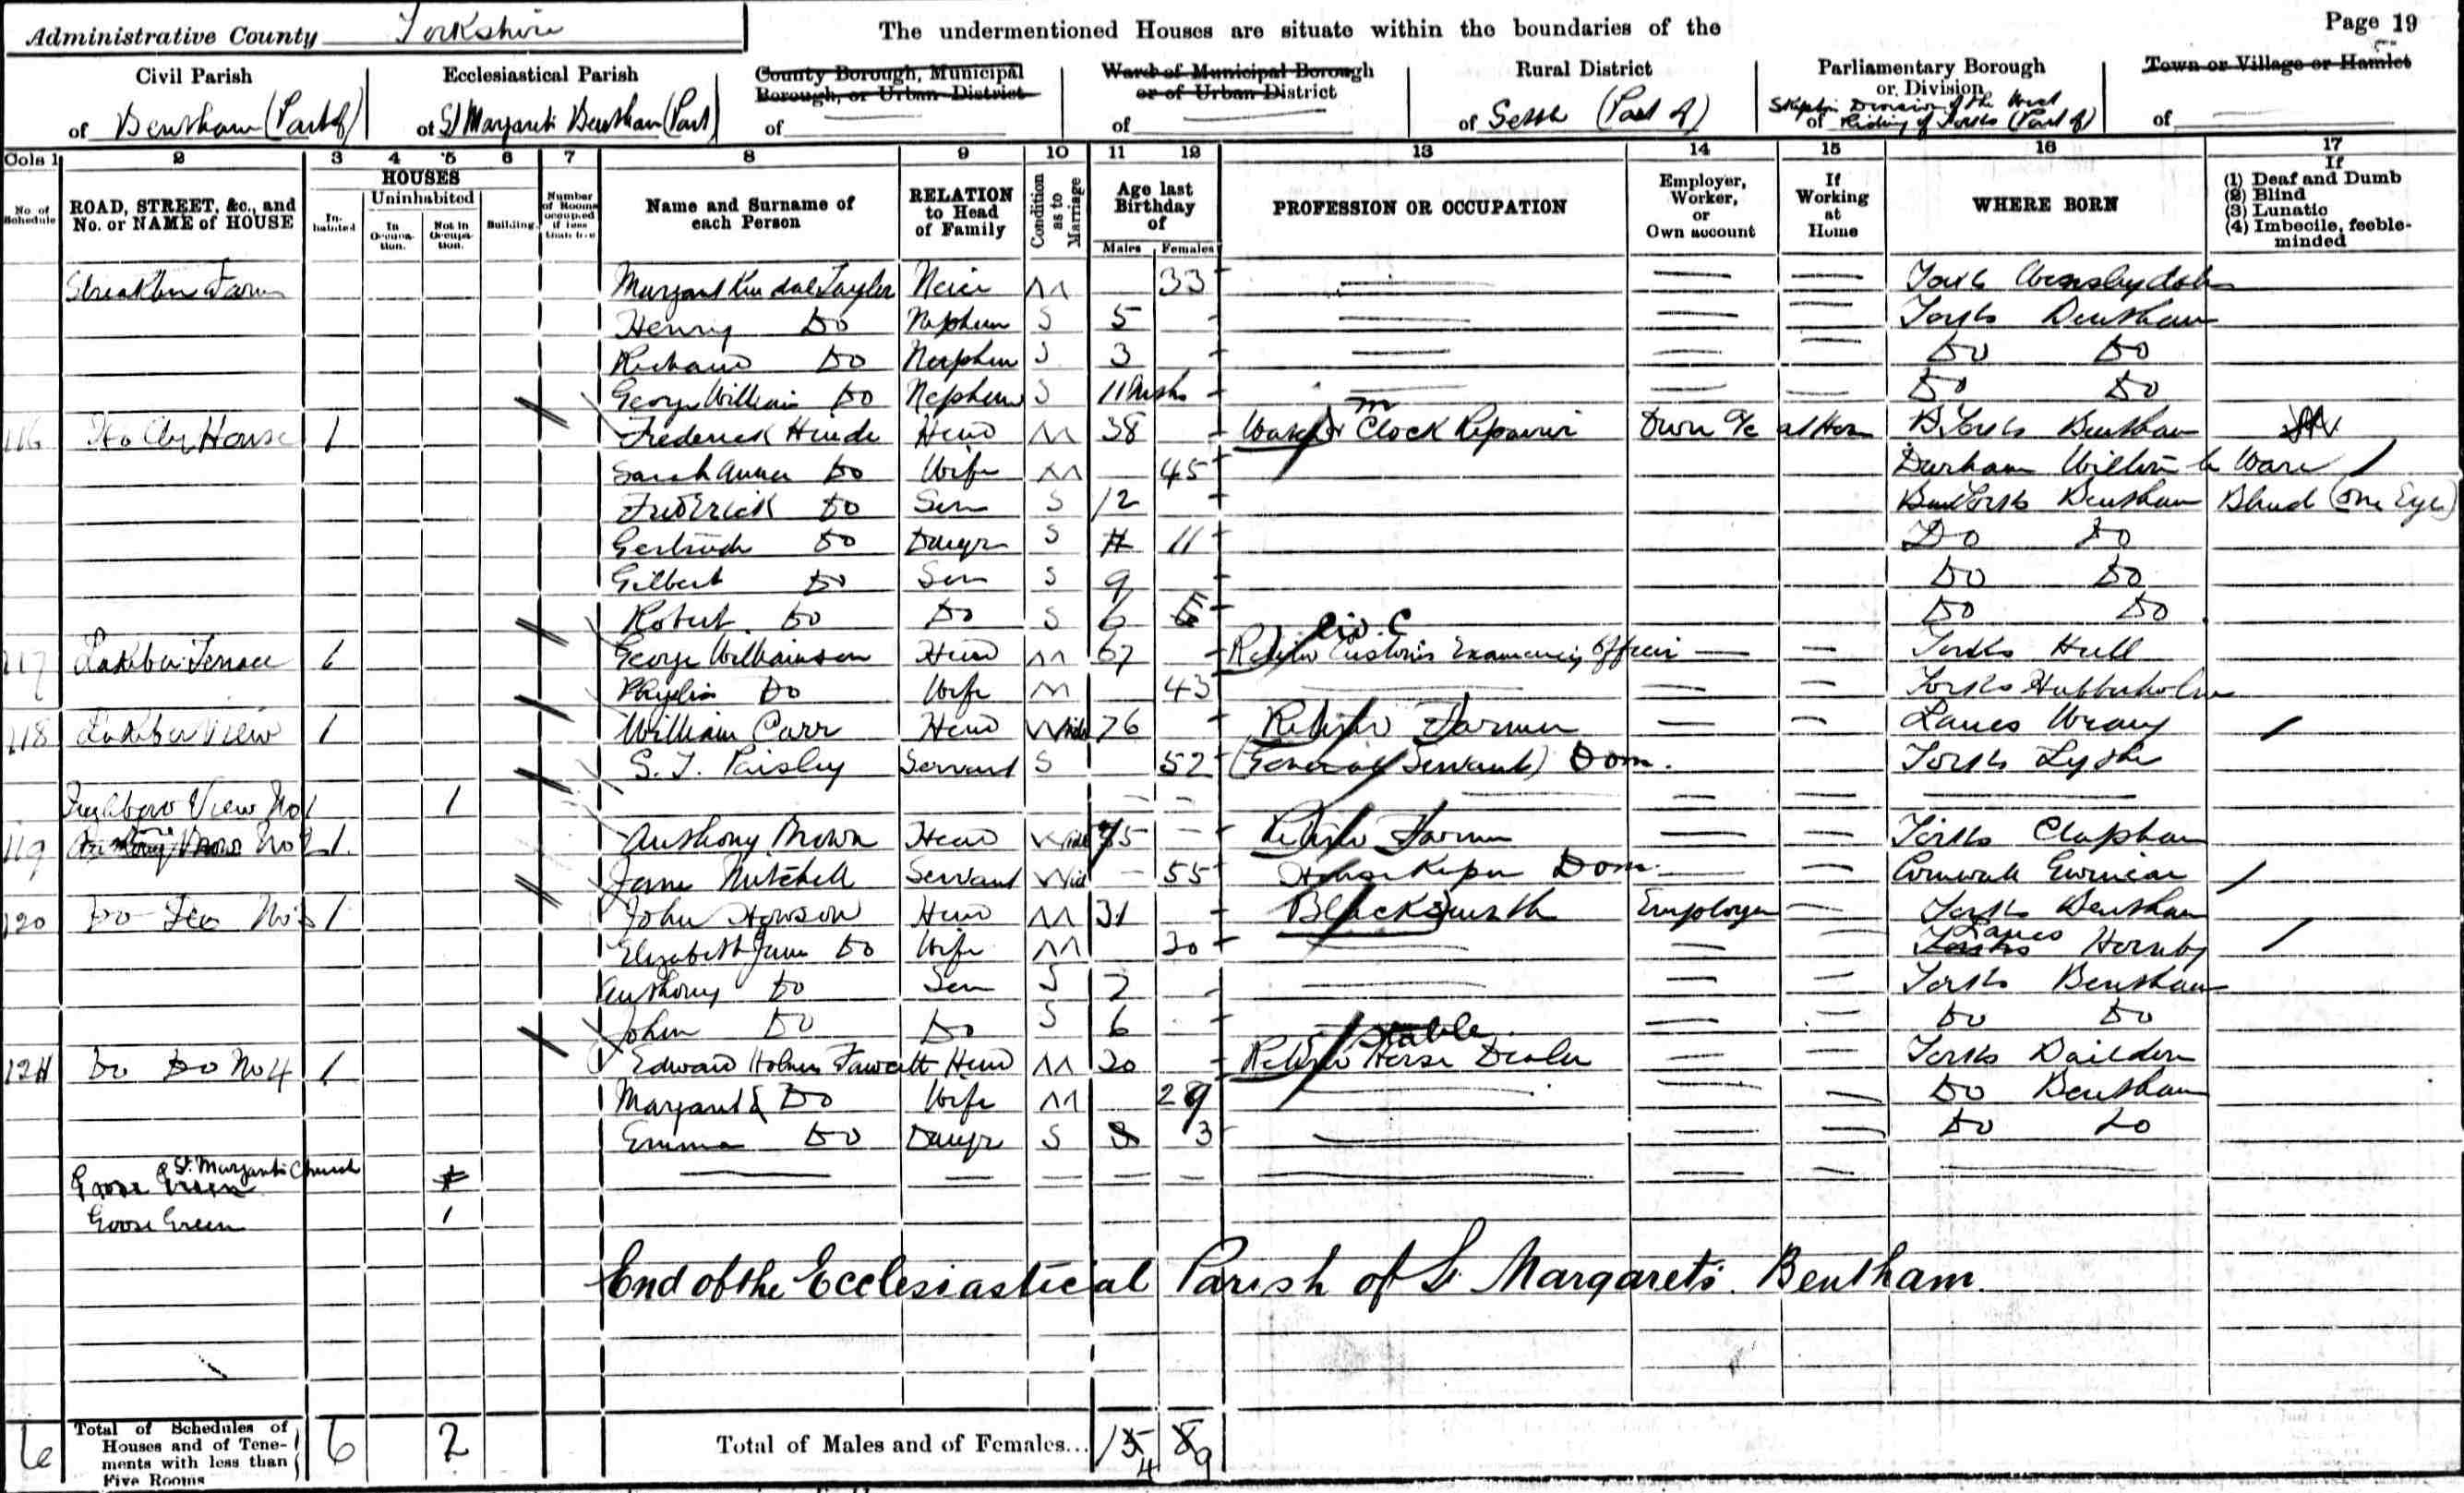 Administrative County Yorkshire
The undermentioned Houses are situate within the boundaries of the
Page 19
Civil Parish of Bentham (Part of)
Ecclesiastical Parish of St Margarets Bentham (Part)
County Borough, Municipal Borough, or Urban District of
Ward of Municipal Borough or of Urban District of
Rural District of Settle (Part of)
Parliamentary Borough or Division of Skipton Division of the West Riding of Yorks (Part of)
Town or Village or Hamlet of
Cols 1 2 3 4 5 6 7 8 9 10 11 12 13 14 15 16 17
No. of Schedule
ROAD, STREET, &c., and No. or NAME of HOUSE
HOUSES
Inhabited
Uninhabited
In Occupation.
Not in Occupation.
Building.
Number of Rooms occupied if less than five
Name and Surname of each Person
RELATION to Head of Family
Condition as to Marriage
Age last Birthday of
Males Females
PROFESSION OR OCCUPATION
Employer, Worker, or Own account
If Working at Home
WHERE BORN
If (1) Deaf and Dumb (2) Blind (3) Lunatic (4) Imbecile, feeble-minded
Farm Margaret Taylor Neice M 33 Yorks Wensleydale
Henry Do Nephew S 5 Yorks Bentham
Richard Do Nephew S 3 Do Do
George William Do Nephew S 11 Mths Do Do
116 House 1 Frederick Hinde Head M 38 Watch & Clock Repairer Own a/c at Hom Yorks Bentham
Sarah Anna Do Wife M 45 Durham Witton le Wear
Frederick Do Son S 12 Yorks Bentham Blind (One Eye)
Gertrude Do Daugr S 11 Do Do
Gilbert Do Son S 9 Do Do
Robert Do Do S 6 Do Do
117 Lakeber Terrace 1 George Williamson Head M 67 Retired Customs Examining Officer Civ. C Yorks Hull
Phyllis Do Wife M 43 Yorks Hubberholm
118 Lakeber View 1 William Carr Head Wid 76 Retired Farmer Lancs Wray
S. J. Paisley Servant S 52 (General Servant) Dom. Yorks Lythe
Ingleboro View No 1 1
119 No 2 1 Anthony Brown Head Wid 75 Retired Farmer Yorks Clapham
Jane Mitchell Servant Wid 55 House Keeper Dom. Cornwall Gwinear
120 Do Do No 3 1 John Howson Head M 31 Blacksmith Employer Yorks Bentham
Elizabeth Jane Do Wife M 30 Lancs Hornby
Anthony Do Son S 7 Yorks Bentham
John Do Do S 6 Do Do
121 Do Do No 4 1 Edward Holmes Fawcett Head M 30 Retired Horse Dealer Stable Yorks
Margaret E Do Wife M 29 Do Bentham
Emma Do Daugr S 3 Do Do
St. Margarets Church
Goose Green
Goose Green 1
End of the Ecclesiastical Parish of St Margarets. Bentham.
6 Total of Schedules of Houses and of Tenements with less than Five Rooms 6 2 Total of Males and of Females... 14 9